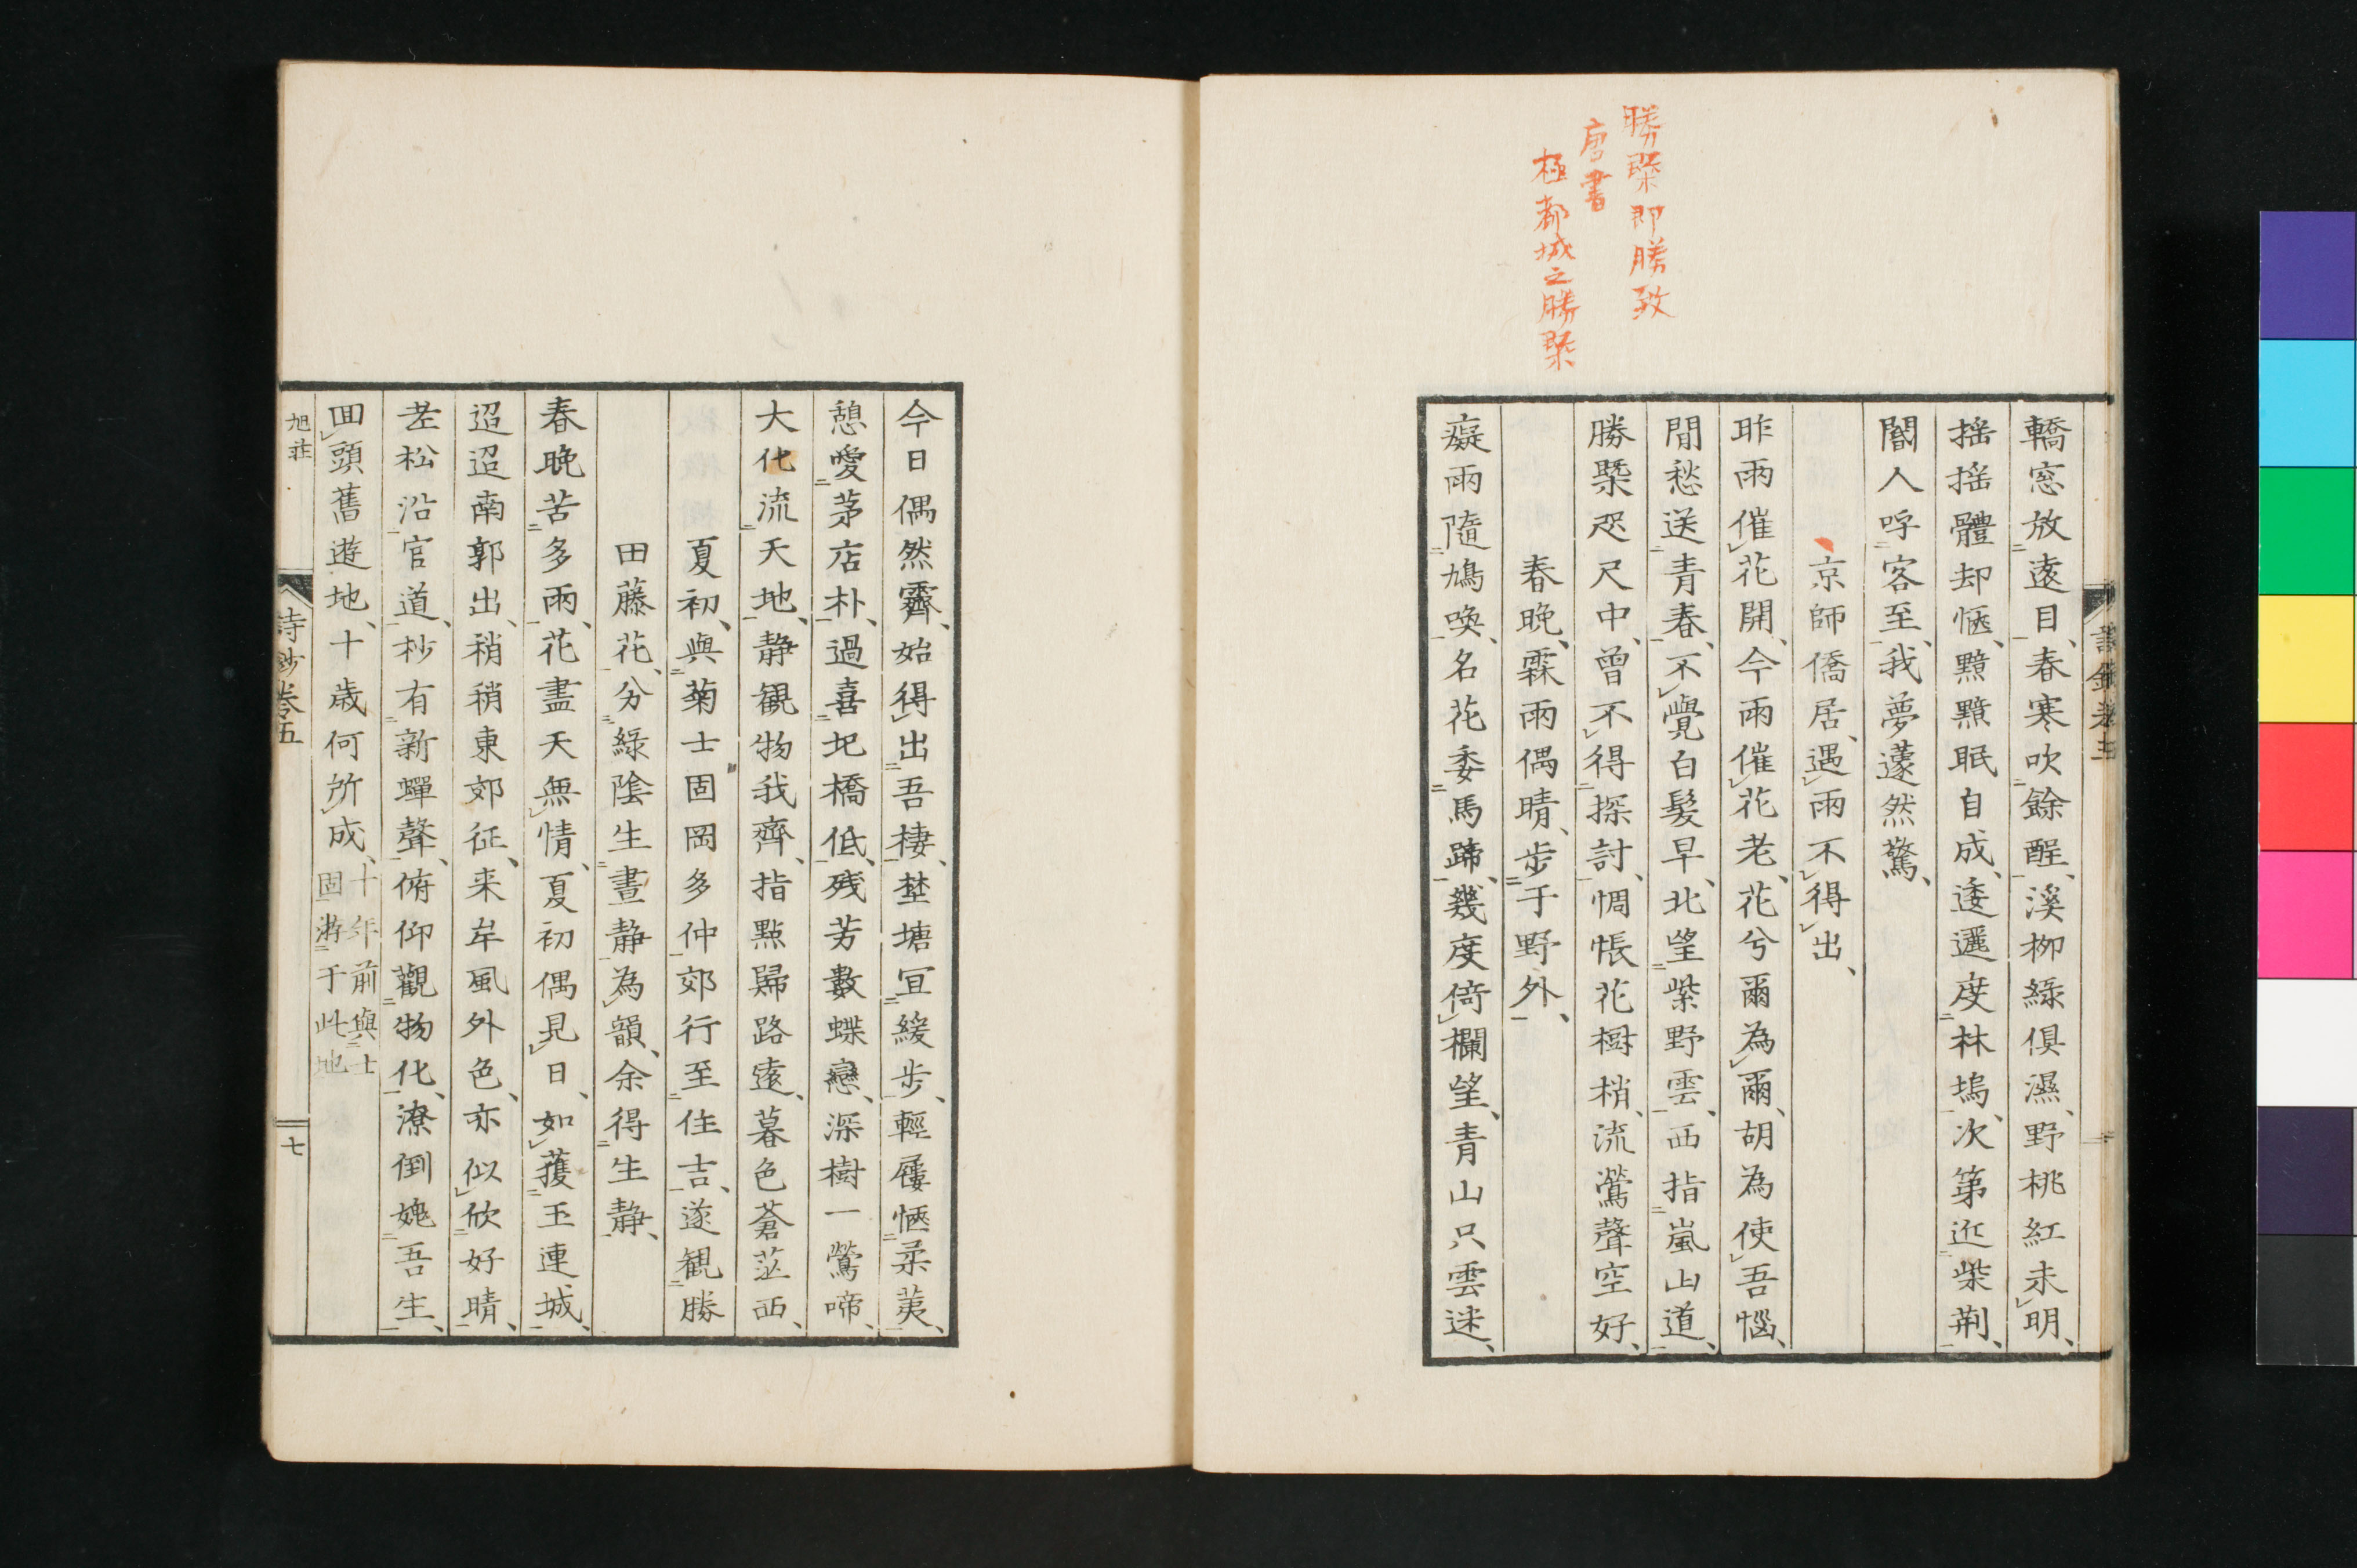 勝槩即勝致
唐書
極都城之勝槩
轎窓放遠目春寒吹餘酲溪柳緑俱濕野桃紅未明
揺揺體却愜黯黯眠自成逶邐度林塢次第近柴荆
閽人呼客至我夢蘧然驚
京師僑居遇雨不得出
昨雨催花開今雨催花老花兮爾為爾胡為使吾惱
閒愁送青春不覺白髮早北望紫野雲西指嵐山道
勝槩咫尺中曾不得探討惆悵花樹梢流鶯聲空好
春晩霖雨偶晴歩于野外
癡雨隨鳩喚名花委馬蹄幾度倚欄望青山只雲迷
今日偶然霽始得出吾棲埜塘宜緩歩輕屨愜柔荑
憩愛茅店朴過喜圯橋低残芳數蝶戀深樹一鶯啼
大化流天地静観物我齊指點歸路遠暮色蒼茫西
夏初與菊士固岡多仲郊行至住吉遂観勝
田藤花分緑陰生晝静為韻余得生静
春晩苦多雨花盡天無情夏初偶見日如獲玉連城
迢迢南郭出稍稍東郊征来牟風外色亦似欣好晴
老松沿官道杪有新蟬聲俯仰觀物化潦倒媿吾生
囬頭舊遊地十歳何所成十年前與士
固游于此地
旭荘
詩鈔卷五
七